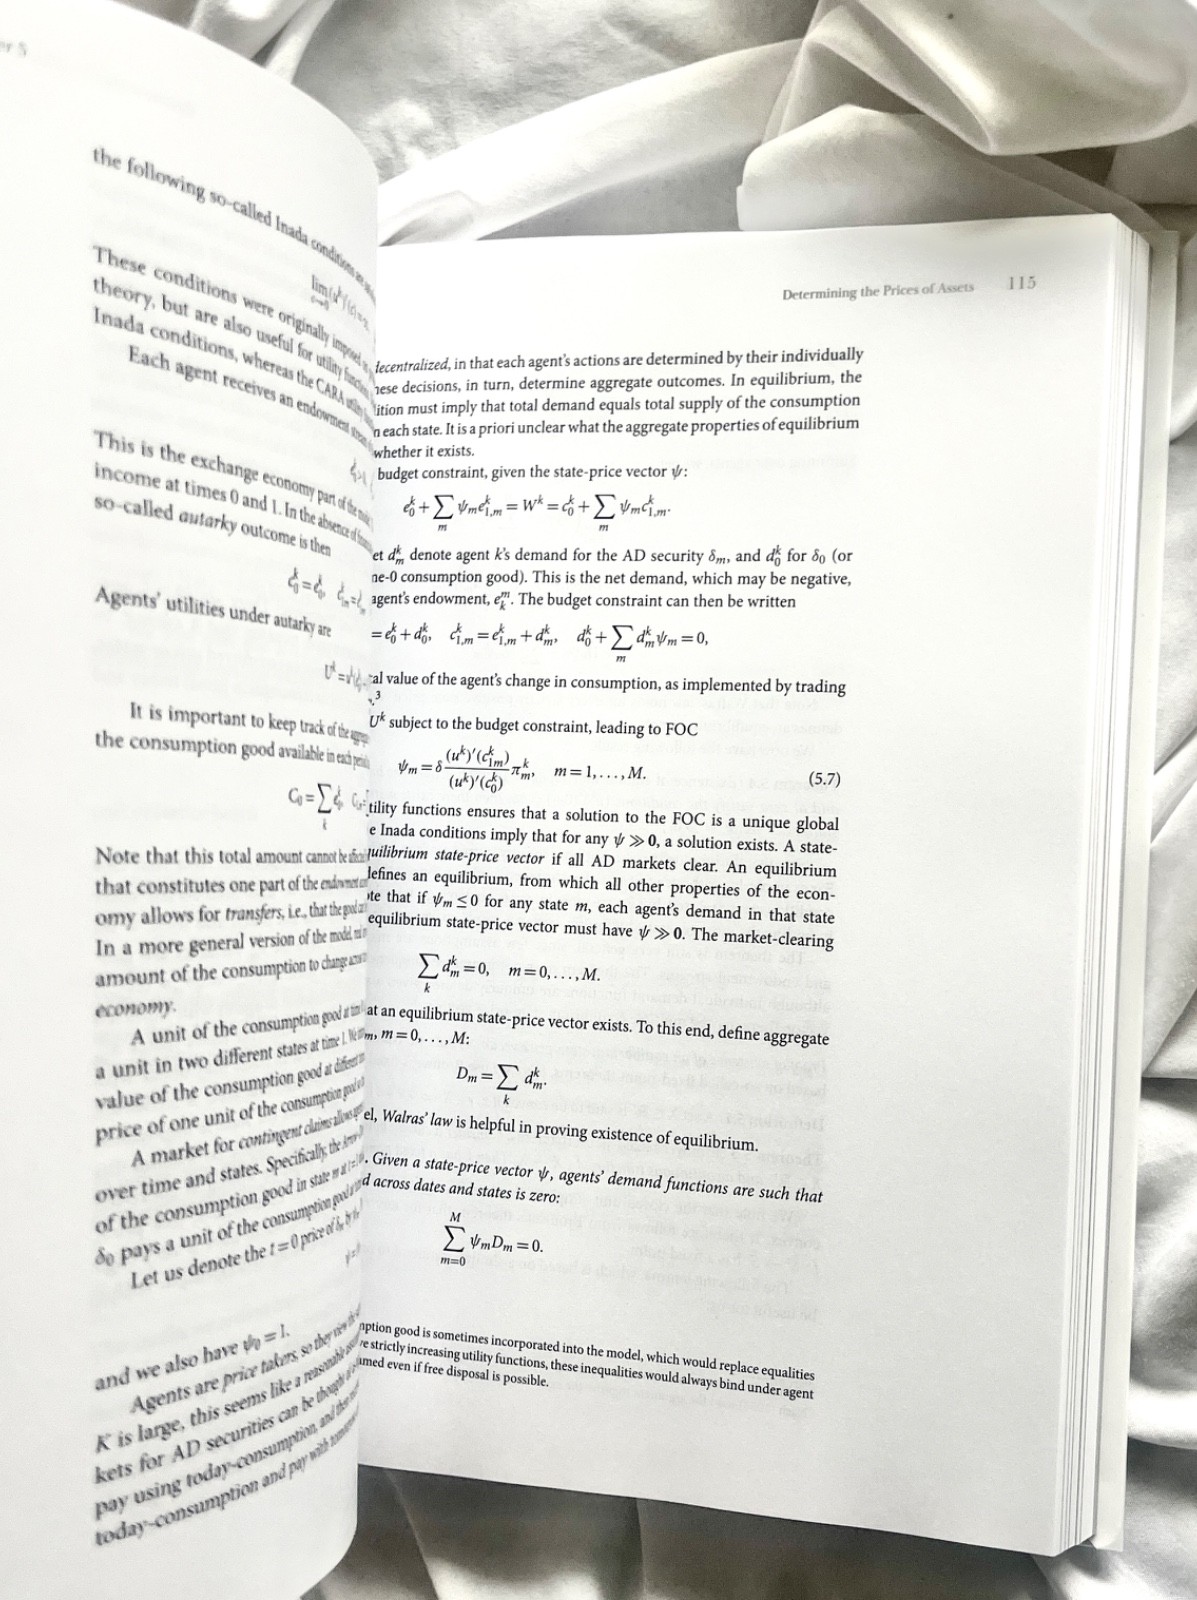 the following so-called Inada conditions
These conditions were originally imposed
theory, but are also useful for utility
Inada conditions, whereas the CARA utility
Each agent receives an endowment
This is the exchange economy part of the
income at times 0 and 1. In the absence of
so-called autarky outcome is then
Agents' utilities under autarky are
It is important to keep track of the
the consumption good available in each
Note that this total amount cannot be
that constitutes one part of the endowment
omy allows for transfers, i.e., that the good
In a more general version of the model,
amount of the consumption to change
economy.
A unit of the consumption good at
a unit in two different states at time 1.
value of the consumption good at different
price of one unit of the consumption good
A market for contingent claims allows
over time and states. Specifically, the
of the consumption good in state m at
δ₀ pays a unit of the consumption good
Let us denote the t = 0 price of
and we also have ψ₀ = 1.
Agents are price takers, so they view the
K is large, this seems like a reasonable
kets for AD securities can be thought
pay using today-consumption, and then
today-consumption and pay with
Determining the Prices of Assets 115
decentralized, in that each agent's actions are determined by their individually
these decisions, in turn, determine aggregate outcomes. In equilibrium, the
must imply that total demand equals total supply of the consumption
each state. It is a priori unclear what the aggregate properties of equilibrium
whether it exists.
budget constraint, given the state-price vector ψ:
e₀ᵏ + ∑ₘ ψₘe₁,ₘᵏ = Wᵏ = c₀ᵏ + ∑ₘ ψₘc₁,ₘᵏ.
et dₘᵏ denote agent k's demand for the AD security δₘ, and d₀ᵏ for δ₀ (or
ne-0 consumption good). This is the net demand, which may be negative,
agent's endowment, eₖᵐ. The budget constraint can then be written
= e₀ᵏ + d₀ᵏ, c₁,ₘᵏ = e₁,ₘᵏ + dₘᵏ, d₀ᵏ + ∑ₘ dₘᵏψₘ = 0,
al value of the agent's change in consumption, as implemented by trading
3
Uᵏ subject to the budget constraint, leading to FOC
ψₘ = δ (uᵏ)′(c₁ₘᵏ) / (uᵏ)′(c₀ᵏ) πₘᵏ, m = 1, . . . , M. (5.7)
tility functions ensures that a solution to the FOC is a unique global
e Inada conditions imply that for any ψ ≫ 0, a solution exists. A state-
uilibrium state-price vector if all AD markets clear. An equilibrium
defines an equilibrium, from which all other properties of the econ-
te that if ψₘ ≤ 0 for any state m, each agent's demand in that state
equilibrium state-price vector must have ψ ≫ 0. The market-clearing
∑ₖ dₘᵏ = 0, m = 0, . . . , M.
at an equilibrium state-price vector exists. To this end, define aggregate
m, m = 0, . . . , M:
Dₘ = ∑ₖ dₘᵏ.
el, Walras' law is helpful in proving existence of equilibrium.
. Given a state-price vector ψ, agents' demand functions are such that
d across dates and states is zero:
∑ₘ₌₀ᴹ ψₘDₘ = 0.
mption good is sometimes incorporated into the model, which would replace equalities
re strictly increasing utility functions, these inequalities would always bind under agent
umed even if free disposal is possible.